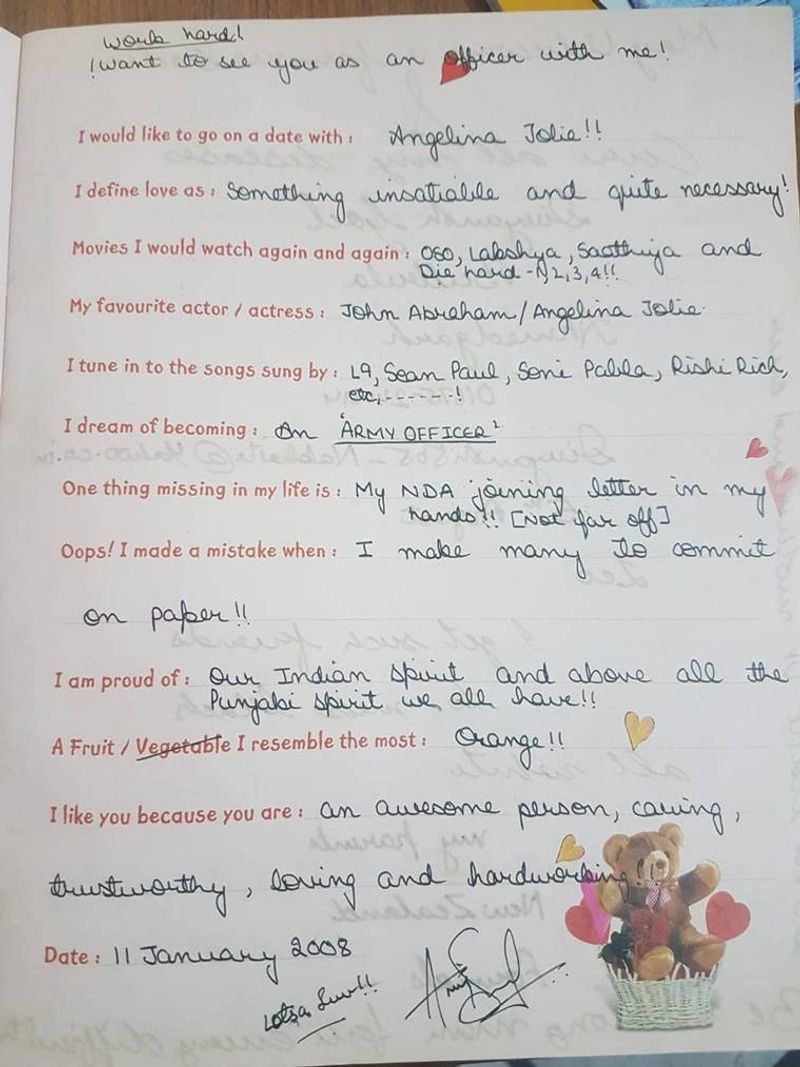 Work hard!
I want to see you as an officer with me!
I would like to go on a date with : Angelina Jolie!!
I define love as : Something insatiable and quite necessary!
Movies I would watch again and again : OSO, Lakshya, Saathiya and
Die hard - 1, 2, 3, 4!!
My favourite actor / actress : John Abraham / Angelina Jolie.
I tune in to the songs sung by : L9, Sean Paul, Soni Pabla, Rishi Rich,
etc, - - - - - - !
I dream of becoming : An 'ARMY OFFICER'
One thing missing in my life is : My NDA joining letter in my
hands!! [Not far off]
Oops! I made a mistake when : I make many to commit
on paper!!
I am proud of : Our Indian Spirit and above all the
Punjabi spirit we all have!!
A Fruit / Vegetable I resemble the most : Orange!!
I like you because you are : an awesome person, caring,
trustworthy, loving and hardworking!!
Date : 11 January 2008
Lotsa Luv!!